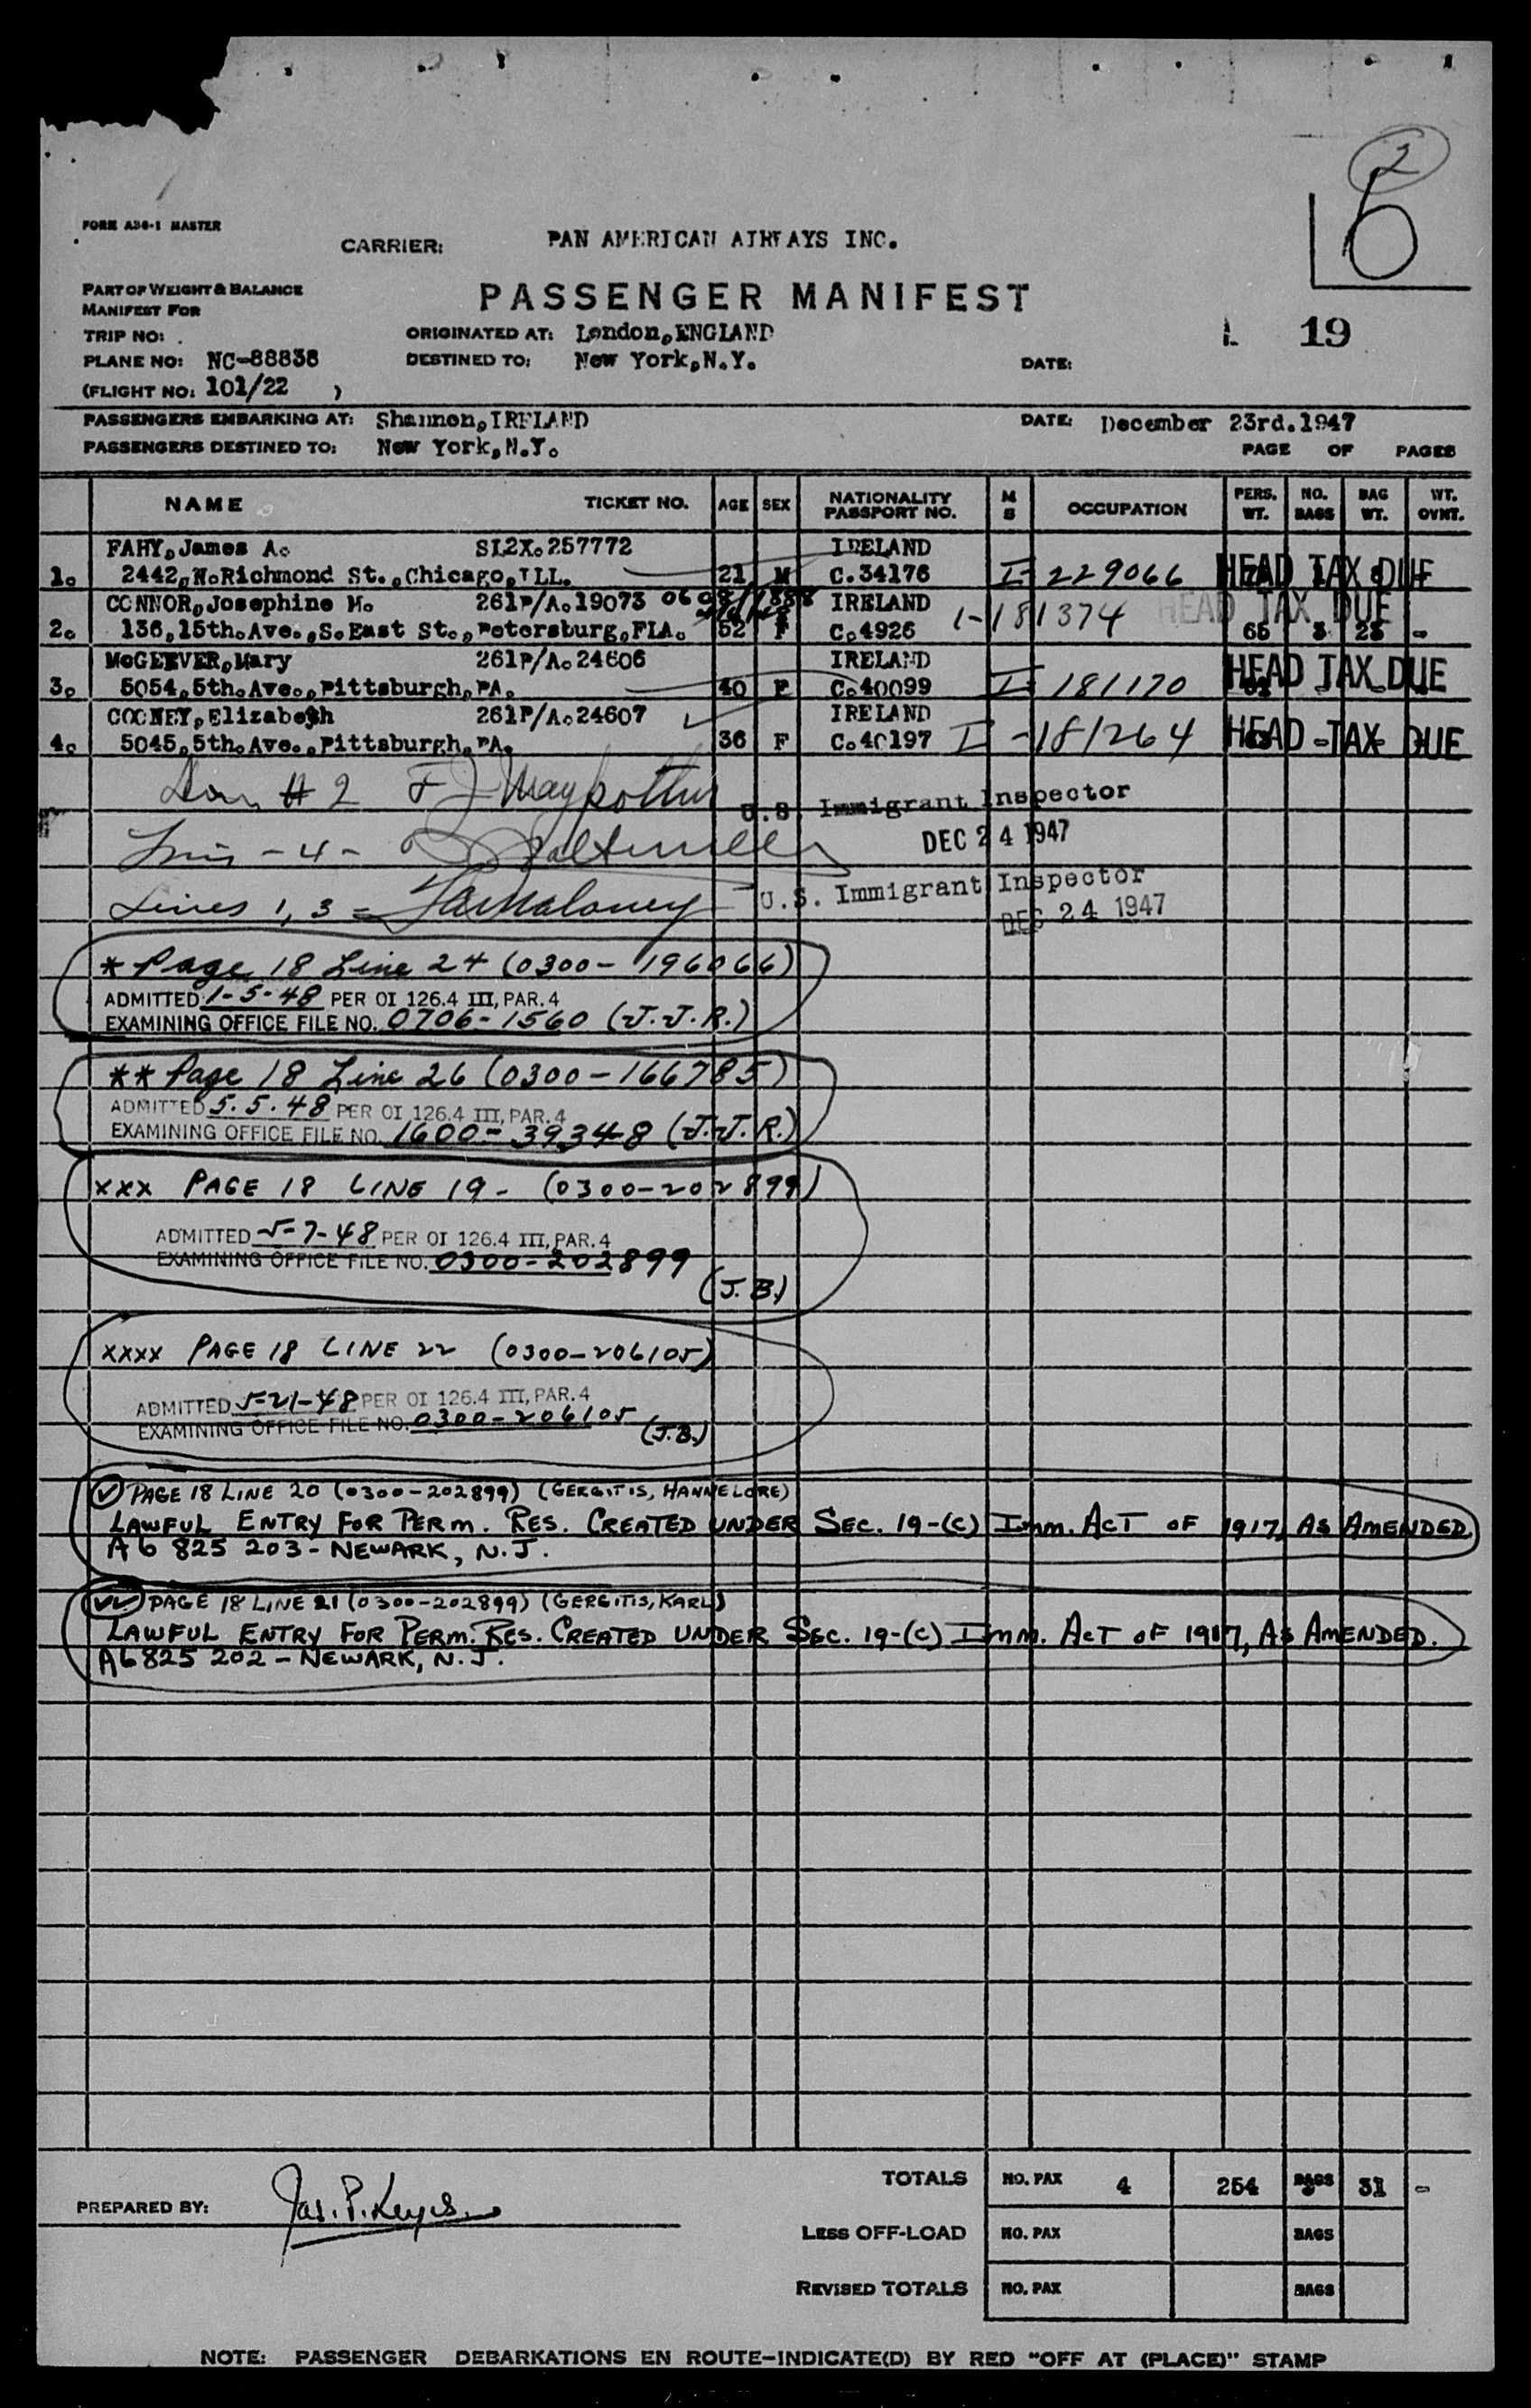 2
6
FORM A36-1 MASTER
CARRIER: PAN AMERICAN AIRWAYS INC.
PART OF WEIGHT & BALANCE
MANIFEST FOR
PASSENGER MANIFEST
TRIP NO:
ORIGINATED AT: London, ENGLAND
L 19
PLANE NO: NC-88838
DESTINED TO: New York, N.Y.
DATE:
(FLIGHT NO: 101/22 )
PASSENGERS EMBARKING AT: Shannon, IRELAND
DATE: December 23rd. 1947
PASSENGERS DESTINED TO: New York, N.Y.
PAGE OF PAGES
NAME TICKET NO. AGE SEX NATIONALITY PASSPORT NO. M S OCCUPATION PERS. WT. NO. BAGS BAG WT. WT. OVNT.
FAHY, James A. SL2X. 257772 IRELAND
1. 2442, N. Richmond St., Chicago, ILL. 21 M C. 34176 I-229066 HEAD TAX DUE
CONNOR, Josephine M. 261P/A. 19073 IRELAND
2. 136, 15th. Ave., S. East St., Petersburg, FLA. 52 F C. 4926 1-181374 HEAD TAX DUE 65 3 23 -
McGEEVER, Mary 261P/A. 24606 IRELAND
3. 5054, 5th. Ave., Pittsburgh, PA. 40 F C. 40099 I-181170 HEAD TAX DUE
COONEY, Elizabeth 261P/A. 24607 IRELAND
4. 5045, 5th. Ave., Pittsburgh, PA. 36 F C. 40197 I-181264 HEAD TAX DUE
# 2 F J
U.S. Immigrant Inspector
DEC 24 1947
Line - 4 -
Lines 1, 3 - Maloney
U.S. Immigrant Inspector
DEC 24 1947
* Page 18 Line 24 (0300-196066)
ADMITTED 1-5-48 PER OI 126.4 III, PAR. 4
EXAMINING OFFICE FILE NO. 0706-1560 (J.J.R.)
** Page 18 Line 26 (0300-166785)
ADMITTED 5.5.48 PER OI 126.4 III, PAR. 4
EXAMINING OFFICE FILE NO. 1600-39348 (J.J.R.)
XXX PAGE 18 LINE 19- (0300-202899)
ADMITTED 5-7-48 PER OI 126.4 III, PAR. 4
EXAMINING OFFICE FILE NO. 0300-202899
(J.B.)
XXXX PAGE 18 LINE 22 (0300-206105)
ADMITTED 5-21-48 PER OI 126.4 III, PAR. 4
EXAMINING OFFICE FILE NO. 0300-206105
(J.B.)
✓ PAGE 18 LINE 20 (0300-202899) (GERGITIS, HANNELORE)
LAWFUL ENTRY FOR PERM. RES. CREATED UNDER SEC. 19-(C) IMM. ACT OF 1917, AS AMENDED.
A6 825 203 - NEWARK, N.J.
✓✓ PAGE 18 LINE 21 (0300-202899) (GERGITIS, KARL)
LAWFUL ENTRY FOR PERM. RES. CREATED UNDER SEC. 19-(C) IMM. ACT OF 1917, AS AMENDED.
A6825 202 - NEWARK, N.J.
PREPARED BY: Jas. P. Keyes
TOTALS NO. PAX 4 254 BAGS 31 -
LESS OFF-LOAD NO. PAX BAGS
REVISED TOTALS NO. PAX BAGS
NOTE: PASSENGER DEBARKATIONS EN ROUTE-INDICATE(D) BY RED "OFF AT (PLACE)" STAMP